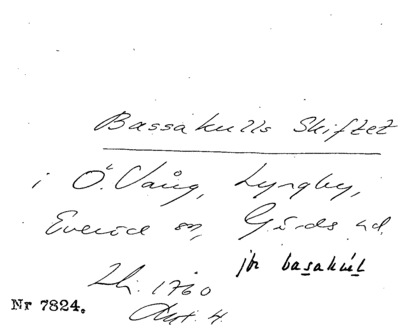 Bassakulls Skiftet
i Ö. Vång, Lyngby,
Everöd sn, Gärds hd.
jfr basakúll
Lhr. 1760
Akt. 4.
Nr 7824.